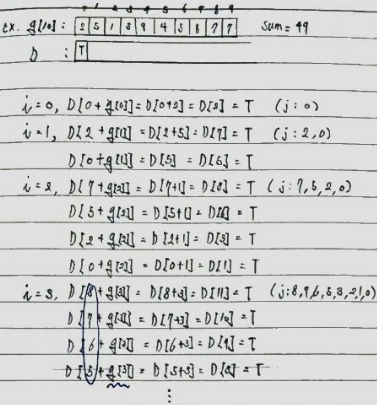 0 1 2 3 4 5 6 7 8 9
ex. g[10] : 2 5 1 3 9 4 5 8 7 7 Sum = 49
D : T
i = 0, D[0+g[0]] = D[0+2] = D[2] = T (j : 0)
i = 1, D[2+g[1]] = D[2+5] = D[7] = T (j : 2,0)
D[0+g[1]] = D[5] = D[5] = T
i = 2, D[7+g[2]] = D[7+1] = D[8] = T (j : 7,5,2,0)
D[5+g[2]] = D[5+1] = D[6] = T
D[2+g[2]] = D[2+1] = D[3] = T
D[0+g[2]] = D[0+1] = D[1] = T
i = 3, D[8+g[3]] = D[8+3] = D[11] = T (j : 8,7,6,5,3,2,1,0)
D[7+g[3]] = D[7+3] = D[10] = T
D[6+g[3]] = D[6+3] = D[9] = T
D[5+g[3]] = D[5+3] = D[8] = T
⋮